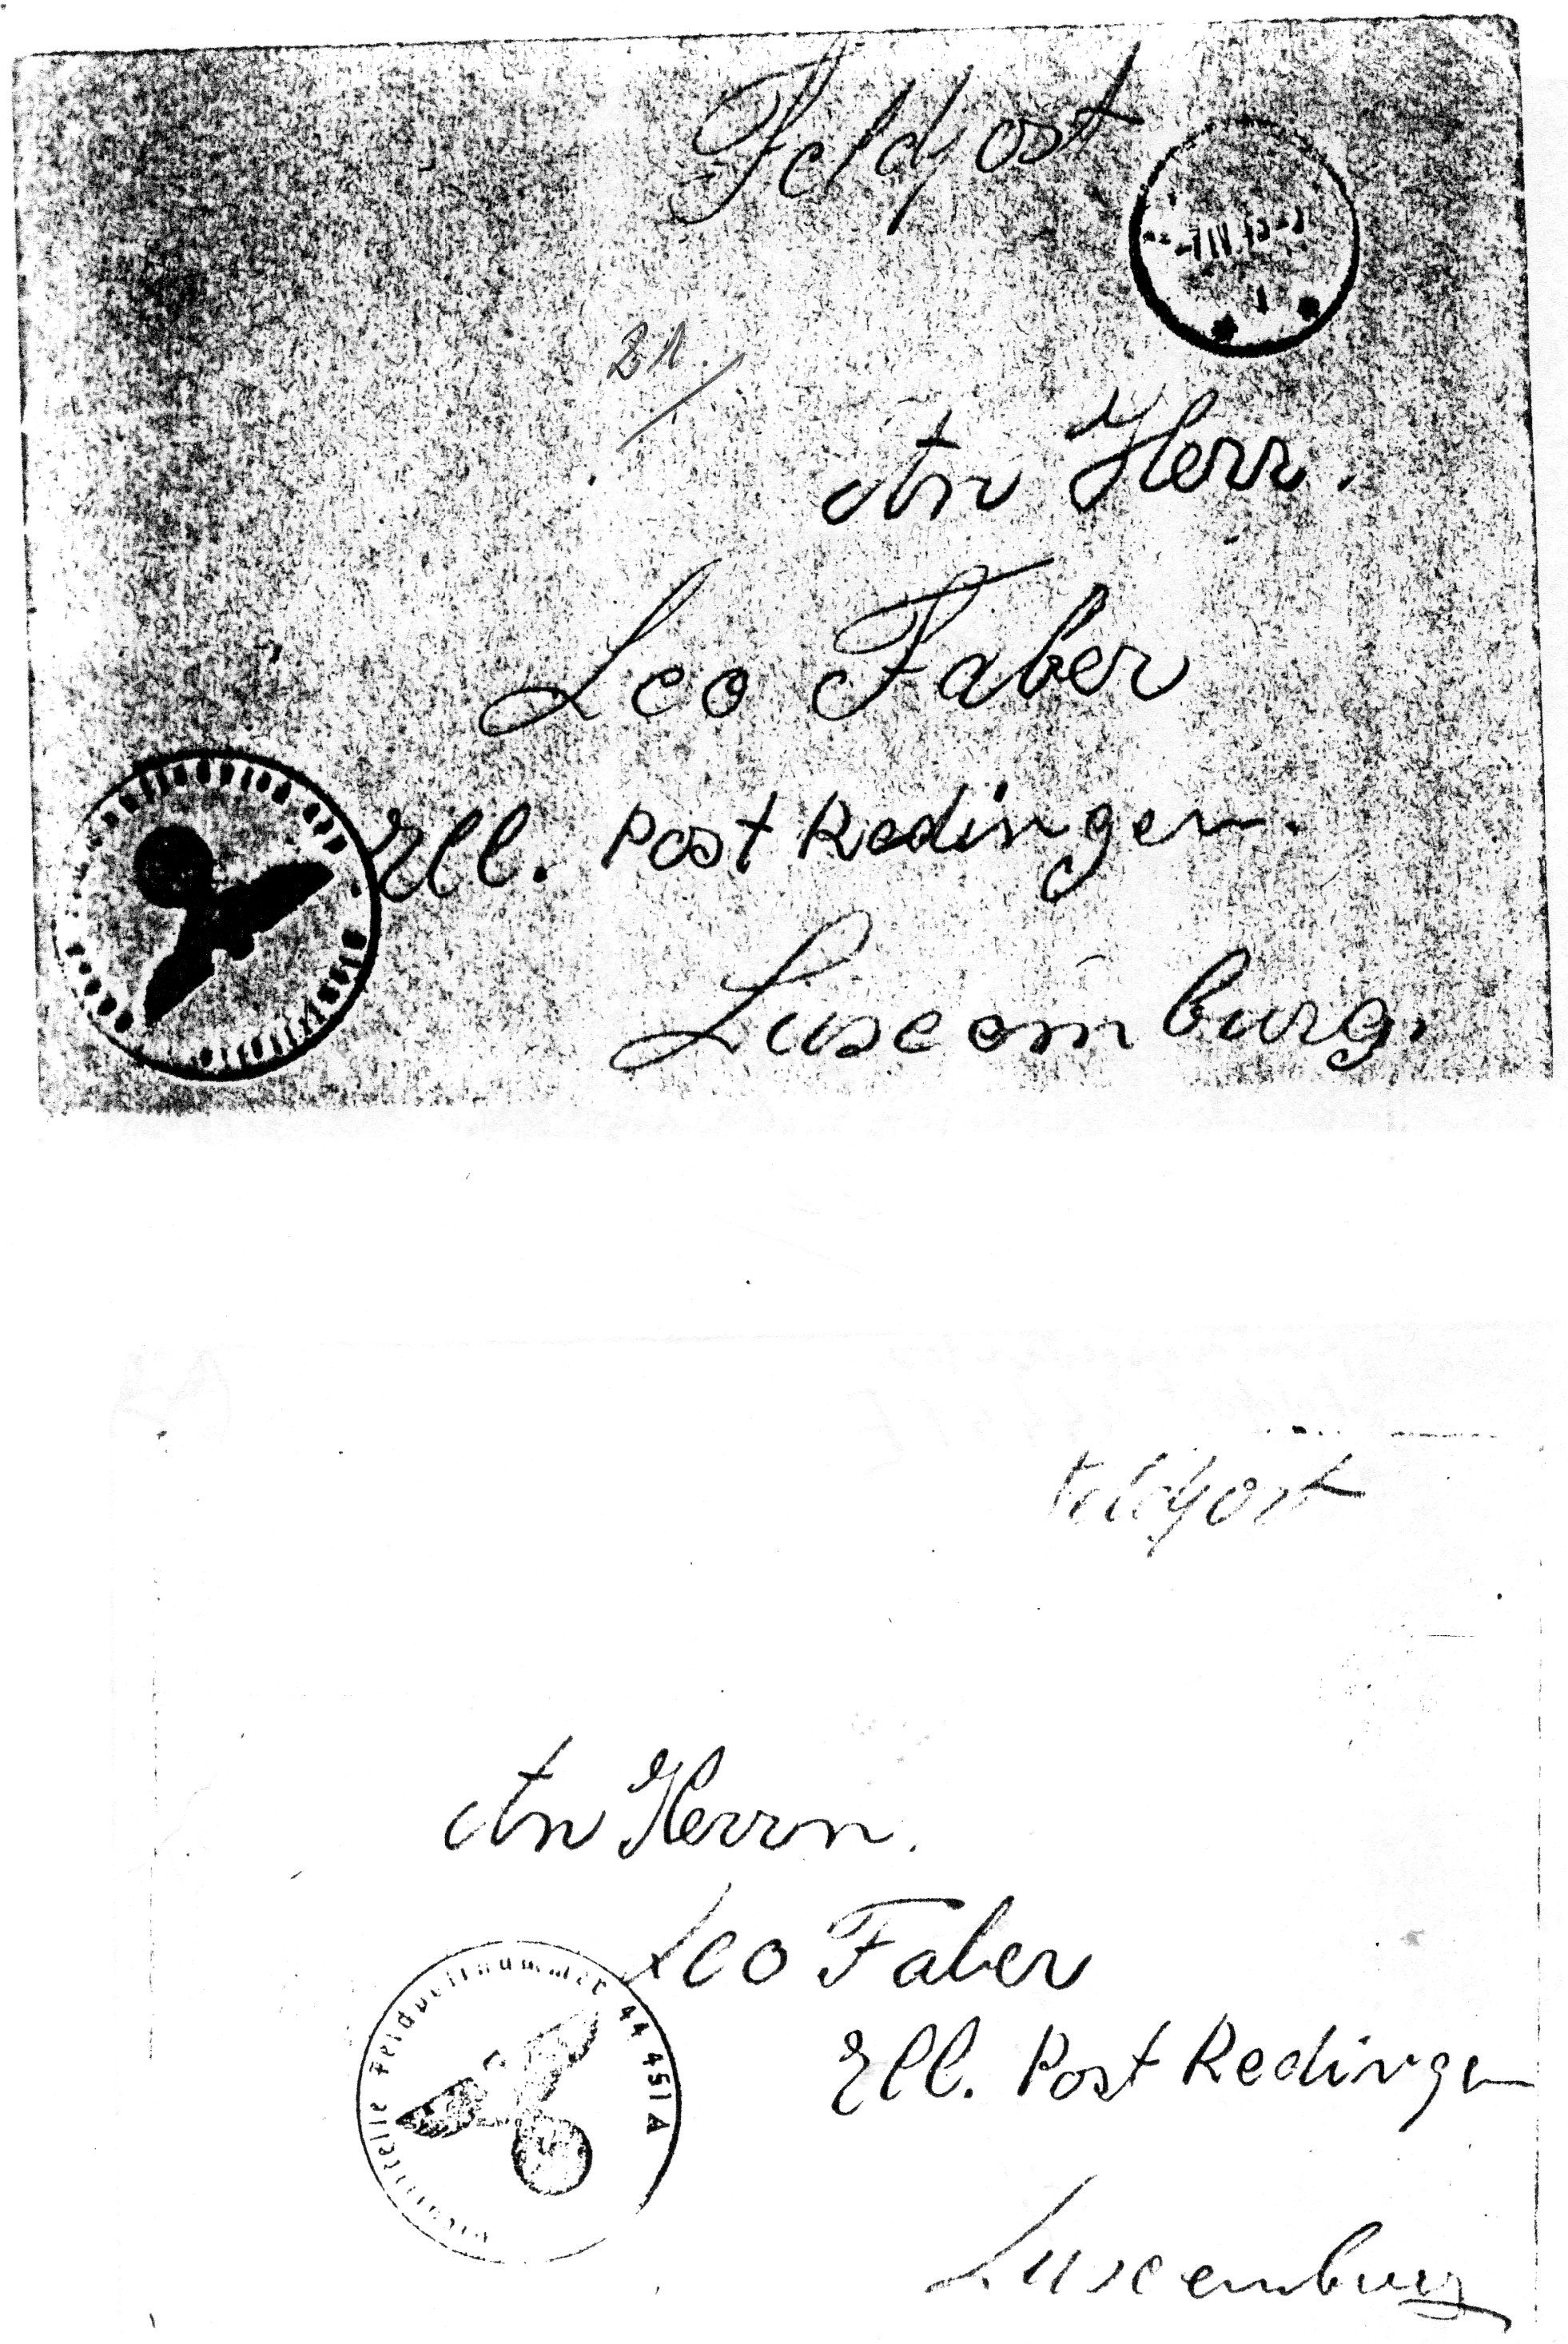 Feldpost
21.
An Herr.
Leo Faber
Ell. Post Redingen.
Luxemburg.
Feldpost
An Herrn.
Leo Faber
Ell. Post Redingen
Luxemburg
Feldpostnummer 44 451 A